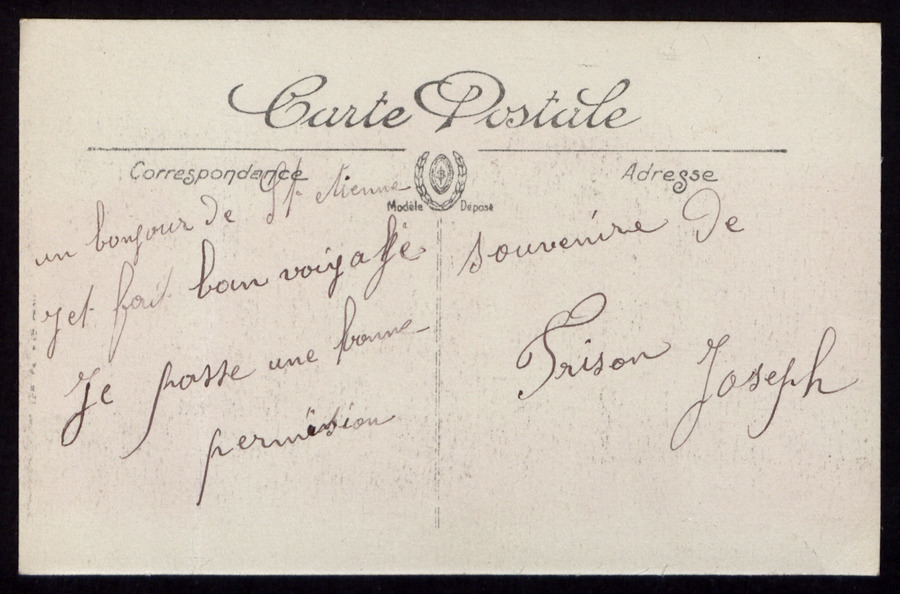 Carte Postale
Correspondance
Adresse
Modèle Déposé
un bonjour de St. Etienne
jet fait bon voiyage
Je passe une bonne
permission
souvenire de
Frison
Joseph